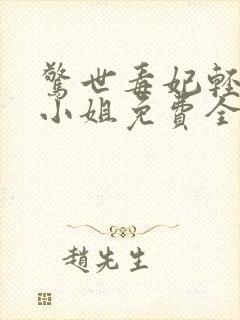 驚世毒妃輕
小姐免費全
趙先生